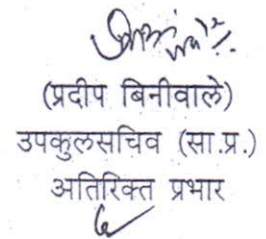 (प्रदीप बिनीवाले)
उपकुलसचिव (सा.प्र.)
अतिरिक्त प्रभार